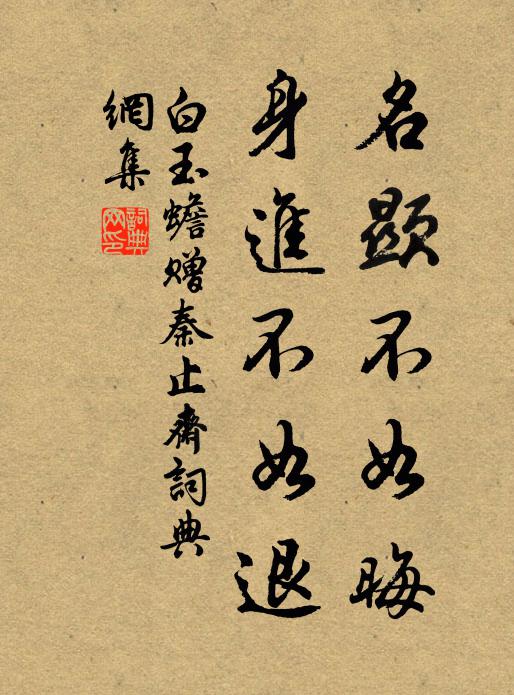 名顯不如晦
身進不如退
白玉蟾贈秦止齋詞典
網集
詞典網印